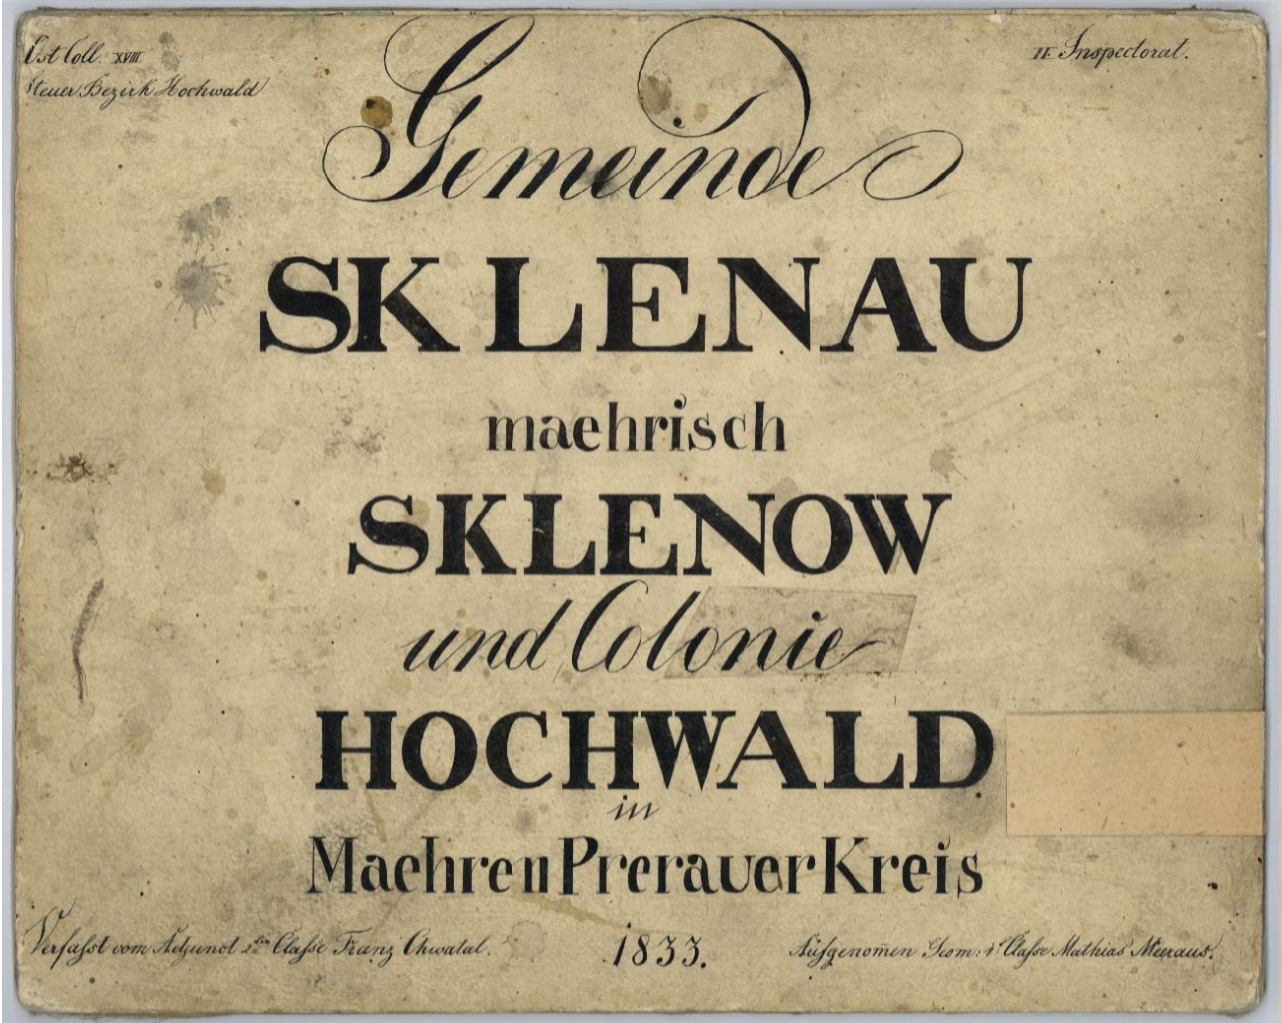 Ost Coll. XVIII
Steuer Bezirk Hochwald
II Inspectorat.
Gemeinde
SKLENAU
maehrisch
SKLENOW
und Colonie
HOCHWALD
in
Maehren Prerauer Kreis
Verfaßt vom Adjunct 2ter Claße Franz Chwatal.
1833.
Aufgenom̅en Geom: 1r Claße Mathias Meeraus.